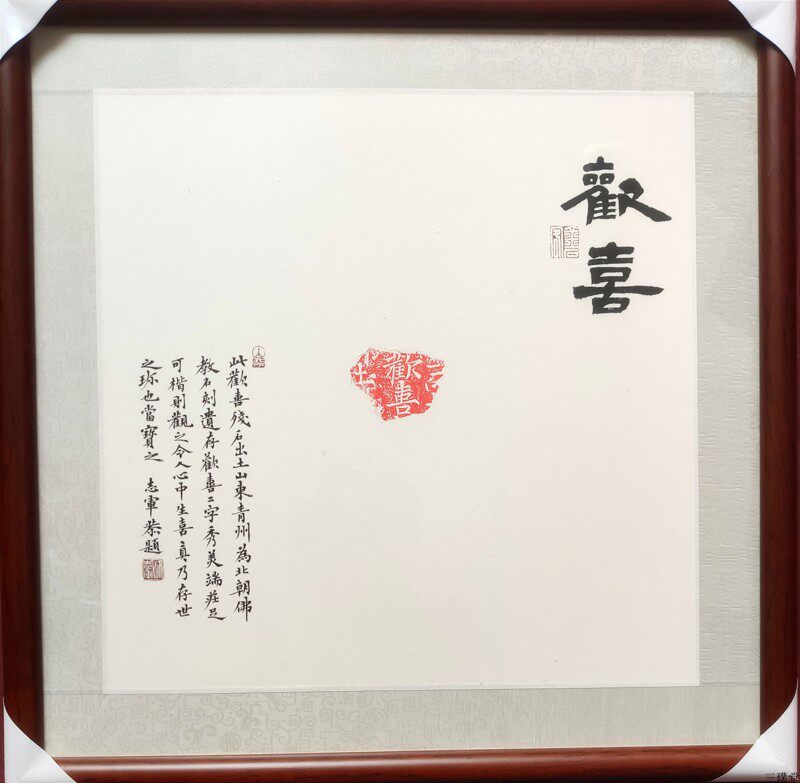 歡喜
歡喜
此歡喜殘石出土山東青州為北朝佛
教石刻遺存歡喜二字秀美端莊足
可楷則觀之令人心中生喜真乃存世
之珎也當寶之 志軍恭題